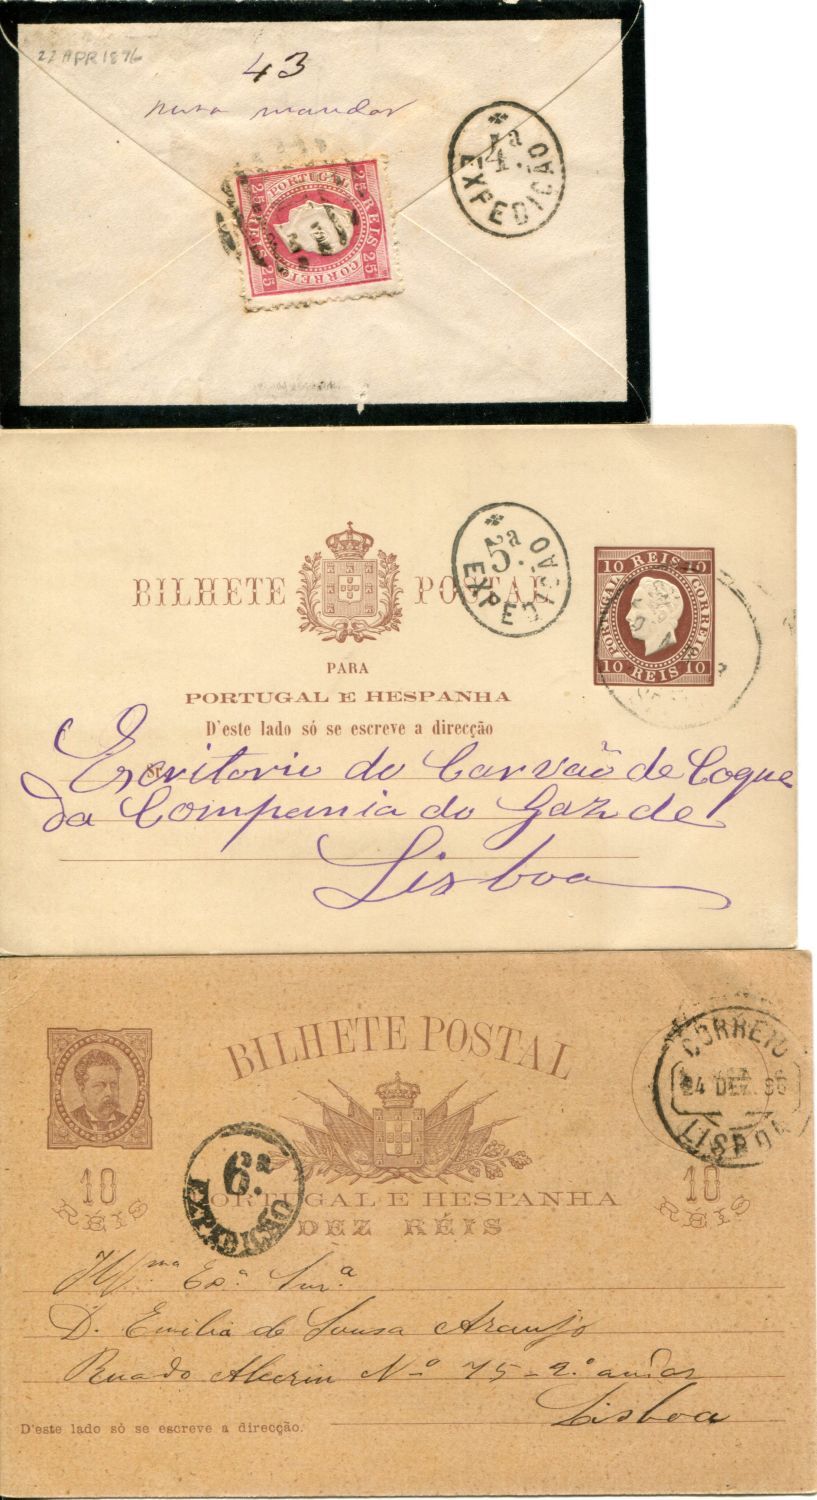 22 APR 1876
43
mandar
4.ª
EXPEDIÇÃO
PORTUGAL
25 REIS 25
CORREIO
25 REIS 25
BILHETE POSTAL
5.ª
EXPEDIÇÃO
10 REIS 10
PORTUGAL
CORREIO
10 REIS 10
PARA
PORTUGAL E HESPANHA
D'este lado só se escreve a direcção
Sr.
Escritorio do Carvão de Coque
da Compania do Gaz de
Lisboa
BILHETE POSTAL
CORREIO
24 DEZ. 86
LISBOA
6.ª
EXPEDIÇÃO
10
RÉIS
PORTUGAL E HESPANHA
DEZ RÉIS
10
RÉIS
Ill.ma Ex.ª Snr.ª
D. Emilia de Sousa Araujo
Rua do Alecrim Nº 75-2.º andar
Lisboa
D'este lado só se escreve a direcção.